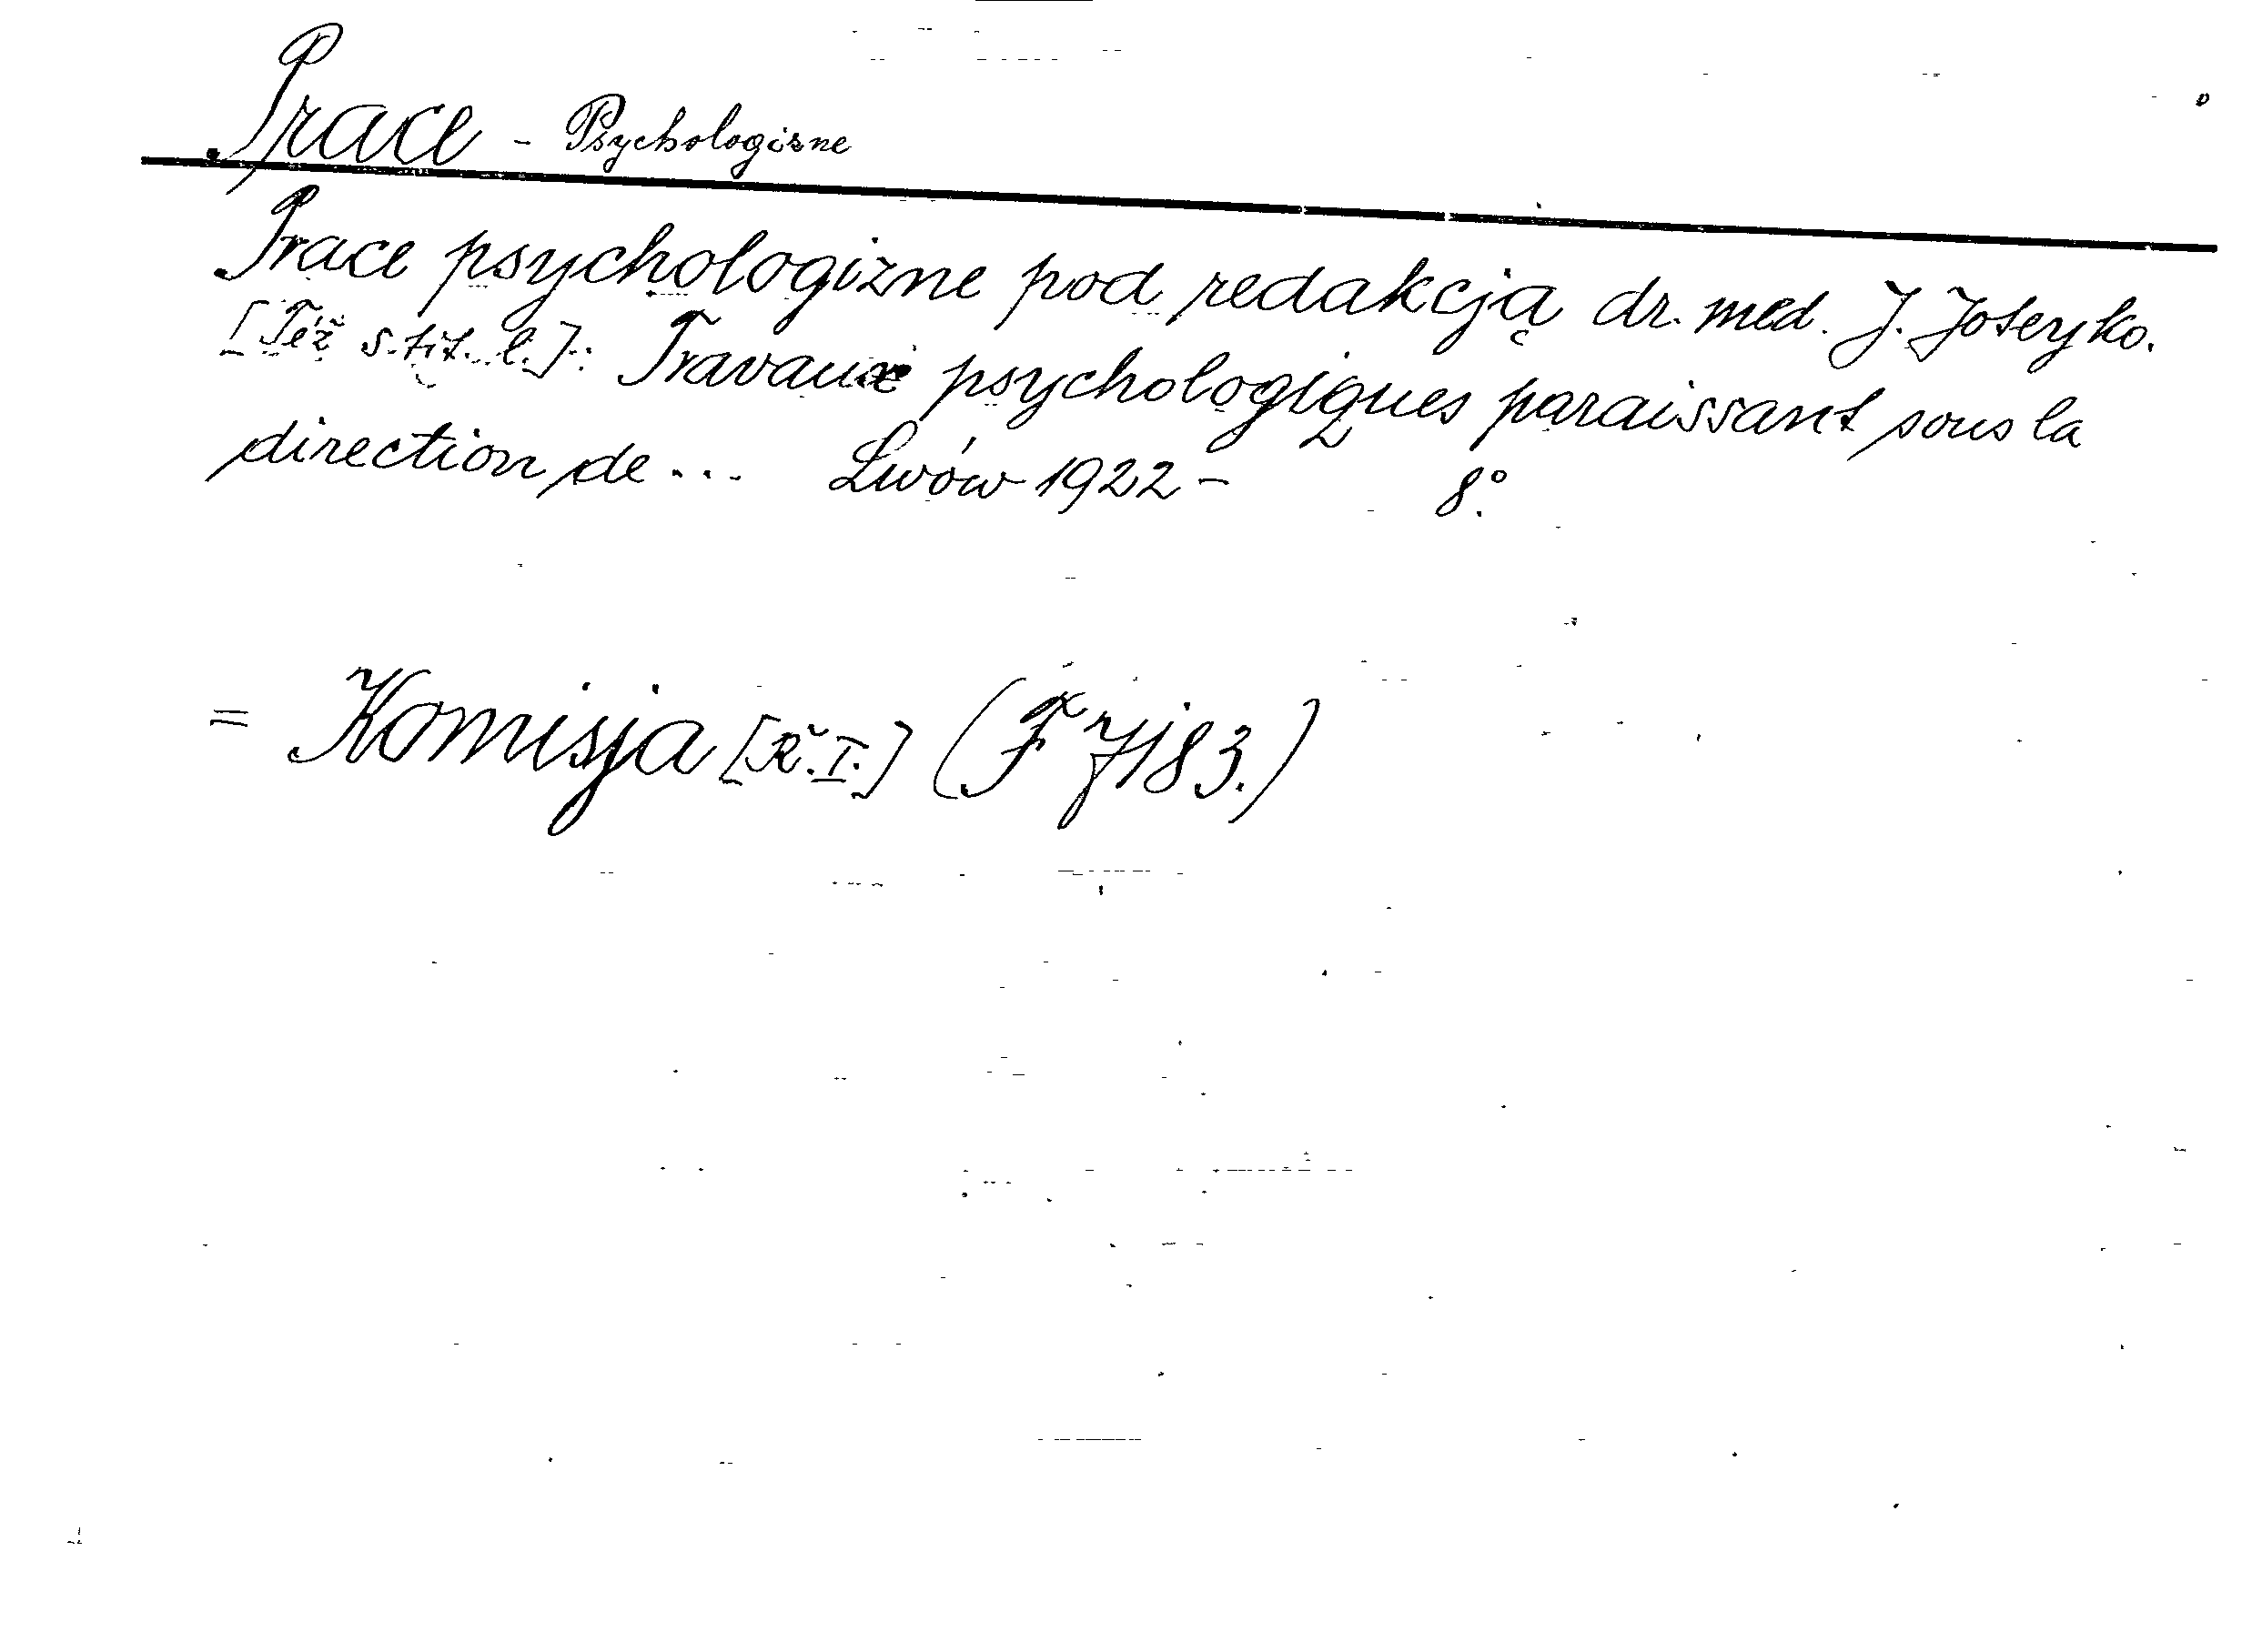 Prace - Psychologizne
Prace psychologizne pod redakcją dr. med. J. Joteyko.
[Też s. tit. l.]: Travaux psychologiques paraissant sous la
direction de... Lwów 1922 - 8°.
= Komisja [R. I.] (F 7183.)